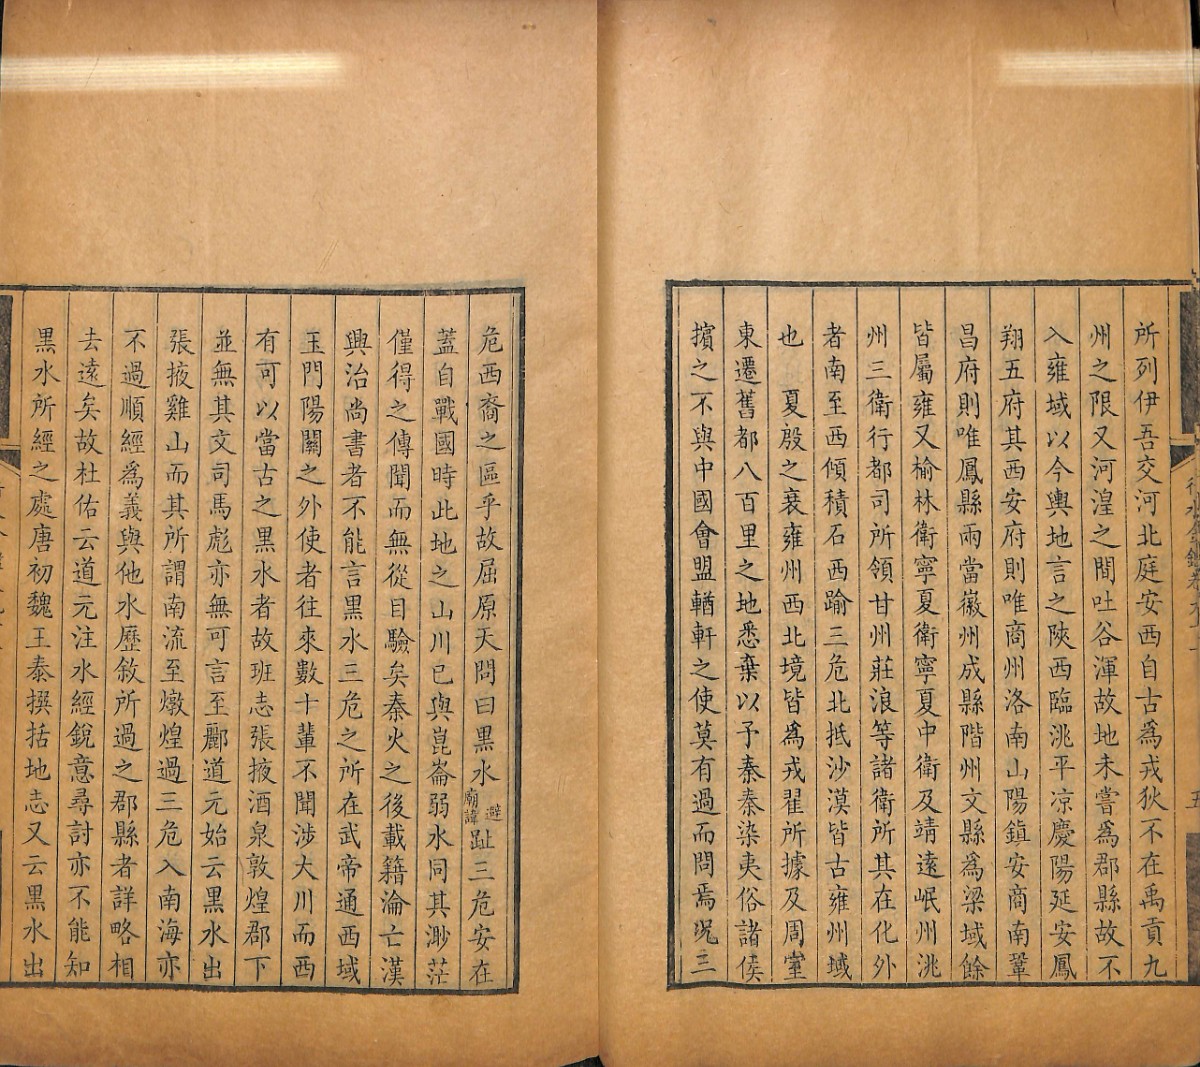 所列伊吾交河北庭安西自古爲戎狄不在禹貢九
州之限又河湟之間吐谷渾故地未嘗爲郡縣故不
入雍域以今輿地言之陝西臨洮平凉慶陽延安鳳
翔五府其西安府則唯商州洛南山陽鎮安商南鞏
昌府則唯鳳縣兩當徽州成縣階州文縣爲梁域餘
皆屬雍又榆林衛寧夏衛寧夏中衛及靖遠岷州洮
州三衛行都司所領甘州莊浪等諸衛所其在化外
者南至西傾積石西踰三危北抵沙漠皆古雍州域
也　夏殷之衰雍州西北境皆爲戎翟所據及周室
東遷舊都八百里之地悉棄以予秦秦染夷俗諸侯
擯之不與中國會盟輶軒之使莫有過而問焉况三
危西裔之區乎故屈原天問曰黑水避廟諱趾三危安在
蓋自戰國時此地之山川已與崑崙弱水同其渺茫
僅得之傳聞而無從目驗矣秦火之後載籍淪亡漢
興治尚書者不能言黑水三危之所在武帝通西域
玉門陽關之外使者往來數十輩不聞涉大川而西
有可以當古之黑水者故班志張掖酒泉敦煌郡下
並無其文司馬彪亦無可言至酈道元始云黑水出
張掖雞山而其所謂南流至燉煌過三危入南海亦
不過順經爲義與他水歷敘所過之郡縣者詳略相
去遠矣故杜佑云道元注水經銳意尋討亦不能知
黑水所經之處唐初魏王泰撰括地志又云黑水出